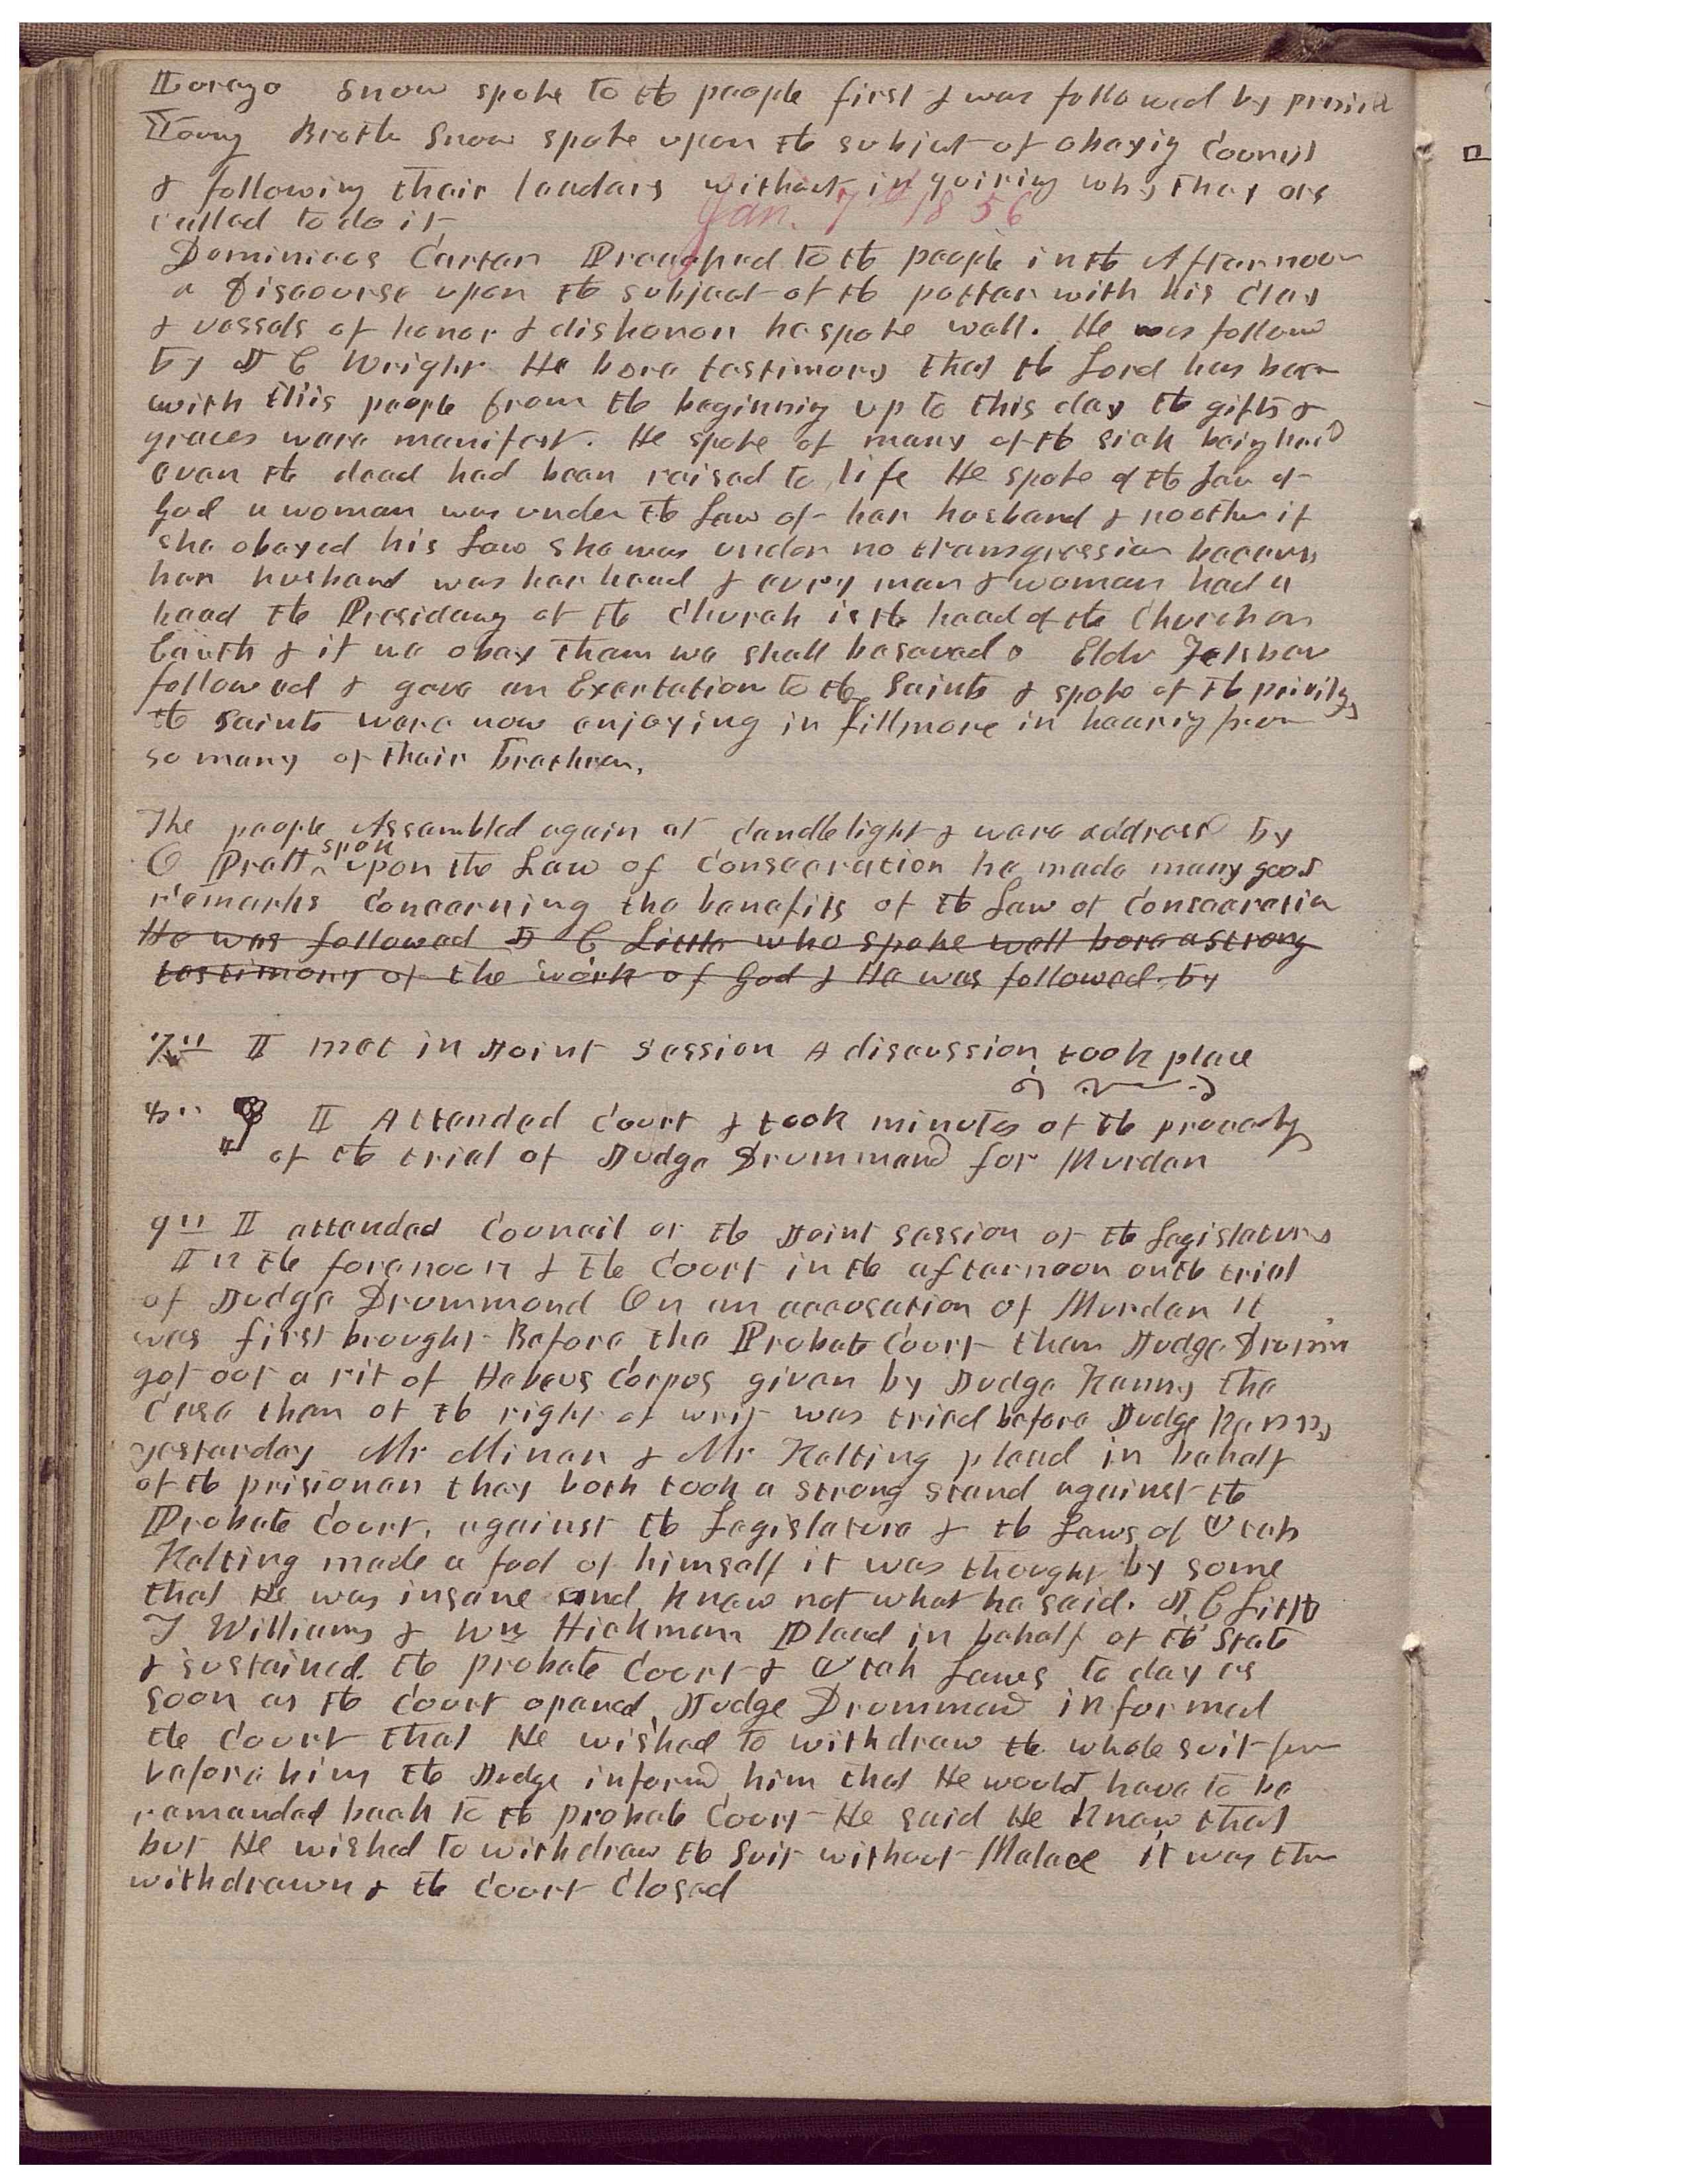 Lorenzo Snow spoke to the people first & was followed by presidt
Young Brother Snow spoke upon the subject of obeying Council
& following their leaders without inquiring why they are
called to do it
Jan. 7th 1856
Dominicos Carter Preached to the people in the Afternoon
a Discourse upon the subject of the potter with his clay
& vessels of honor & dishonor he spoke well. He was followd
by J C Wright He bore testimony that the Lord has been
with this people from the beginning up to this day the gifts &
graces were manifest. He spoke of many of the sick being heald
even the dead had been raised to life He spoke of the Law of
God a woman was under the Law of her husband & no other if
she obeyed his Law she was under no transgression because
her husband was her head & every man & woman had a
head the Presidency of the Church is the head of the Church on
Earth & if we obey them we shall be saved. Elder
followed & gave an Exertation to the Saints & spoke of the privileges
the Saints were now enjoying in Fillmore in hearing from
so many of their brethren.
The people Assembled again at candlelight & were addressd by
O Pratt spok upon the Law of Consecration he made many good
remarks concerning the benefits of the Law of Consecration
He was followed J C Little who spoke well bore a strong
testimony of the work of God & He was followed by
7th I met in Joint Session A discussion took place
8th I Attended Court & took minutes of the proceedings
of the trial of Judge Drummand for Murder
9th I attended Council or the Joint session of the Legislature
In the forenoon & the Court in the afternoon on the trial
of Judge Drummond On an accusation of Murder it
was first brought Before the Probate Court then Judge Drumm
got out a rit of Habeus Corpos given by Judge Kenny the
Case then of the right of writ was tried before Judge Kenny
yesterday Mr Miner & Mr Kelting plead in behalf
of the prisioner they both took a strong stand against the
Probate Court, against the Legislature & the Laws of Utah
Kelting made a fool of himself it was thought by some
that He was insane and knew not what he said. J. C Little
T Williams & Wm Hickman Plead in behalf of the State
& sustained the probate Court & Utah Laws to day as
soon as the Court opened Judge Drummond informed
the Court that He wished to withdraw the whole suit from
before him the Judge informd him that He would have to be
remanded back to the probate Court He said He Knew that
but He wished to withdraw the Suit without Malace it was then
withdrawn & the Court Closed